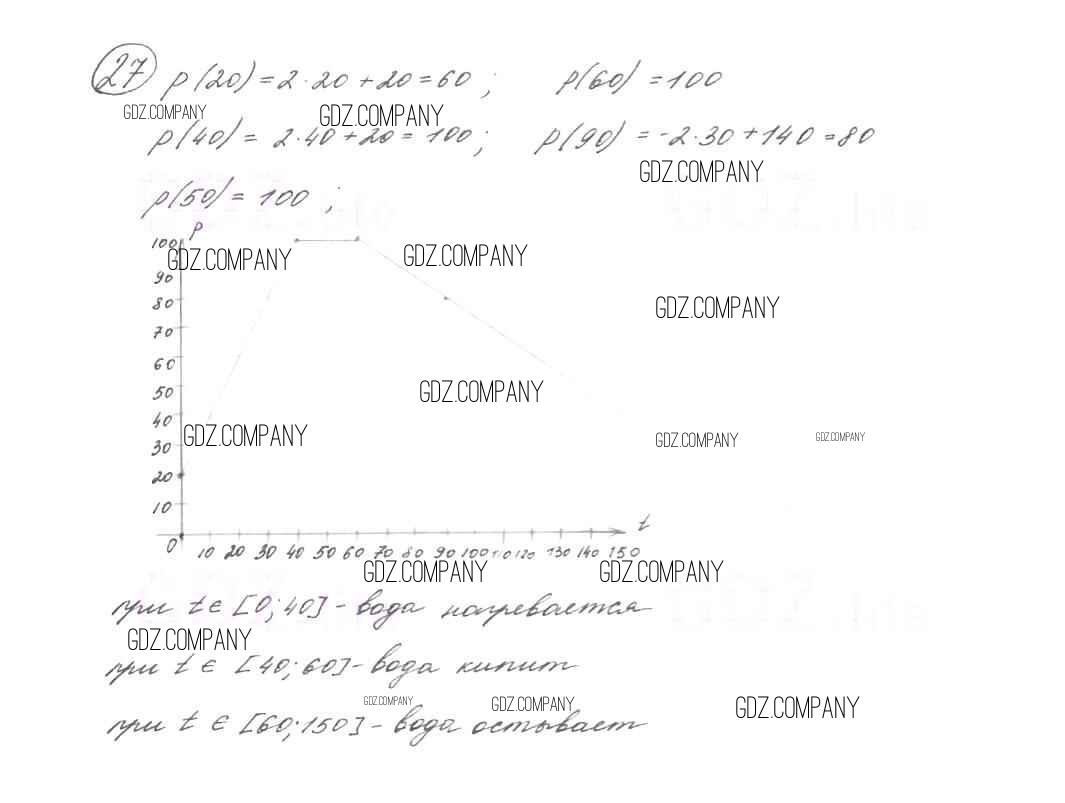 27 p(20) = 2·20 + 20 = 60 ; p(60) = 100
GDZ.COMPANY GDZ.COMPANY
p(40) = 2·40 + 20 = 100 ; p(90) = -2·30 + 140 = 80
GDZ.COMPANY
p(50) = 100 ;
p
100
GDZ.COMPANY GDZ.COMPANY
90
80
GDZ.COMPANY
70
60
50
GDZ.COMPANY
40
GDZ.COMPANY GDZ.COMPANY GDZ.COMPANY
30
20
10
t
0 10 20 30 40 50 60 70 80 90 100 110 120 130 140 150
GDZ.COMPANY GDZ.COMPANY
при t ∈ [0; 40] - вода нагревается
GDZ.COMPANY
при t ∈ [40; 60] - вода кипит
GDZ.COMPANY GDZ.COMPANY GDZ.COMPANY
при t ∈ [60; 150] - вода остывает